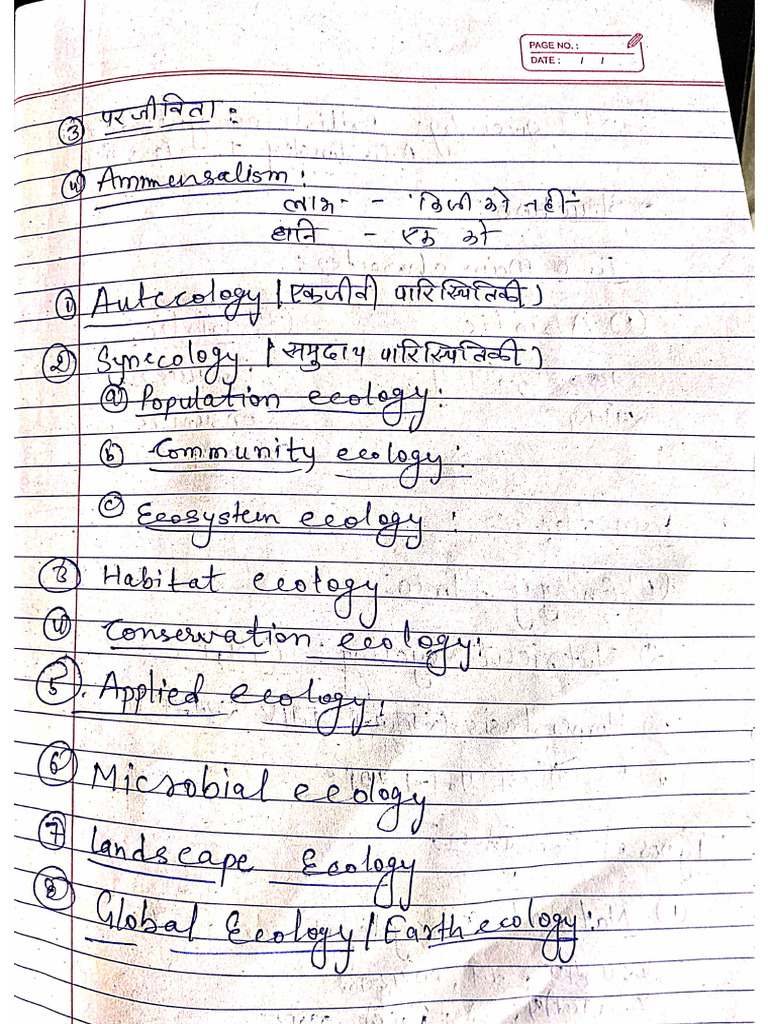 PAGE NO.:
DATE: / /
③ परजीविता :
④ Ammensalism :
लाभ - किसी को नहीं
हानि - एक को
① Autecology / एकजीवी पारिस्थितिकी )
② Synecology / समुदाय पारिस्थितिकी )
ⓐ Population ecology :
ⓑ Community ecology :
ⓒ Ecosystem ecology :
③ Habitat ecology
④ Conservation ecology :
⑤. Applied ecology :
⑥ Microbial ecology
⑦ Landscape Ecology
⑧ Global Ecology / Earth ecology :